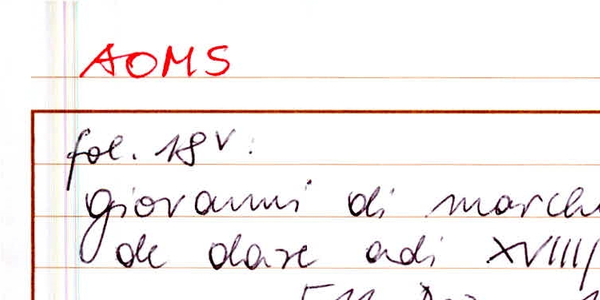 AOMS
fol. 18v:
giovanni di march
de dare adi XVIII/